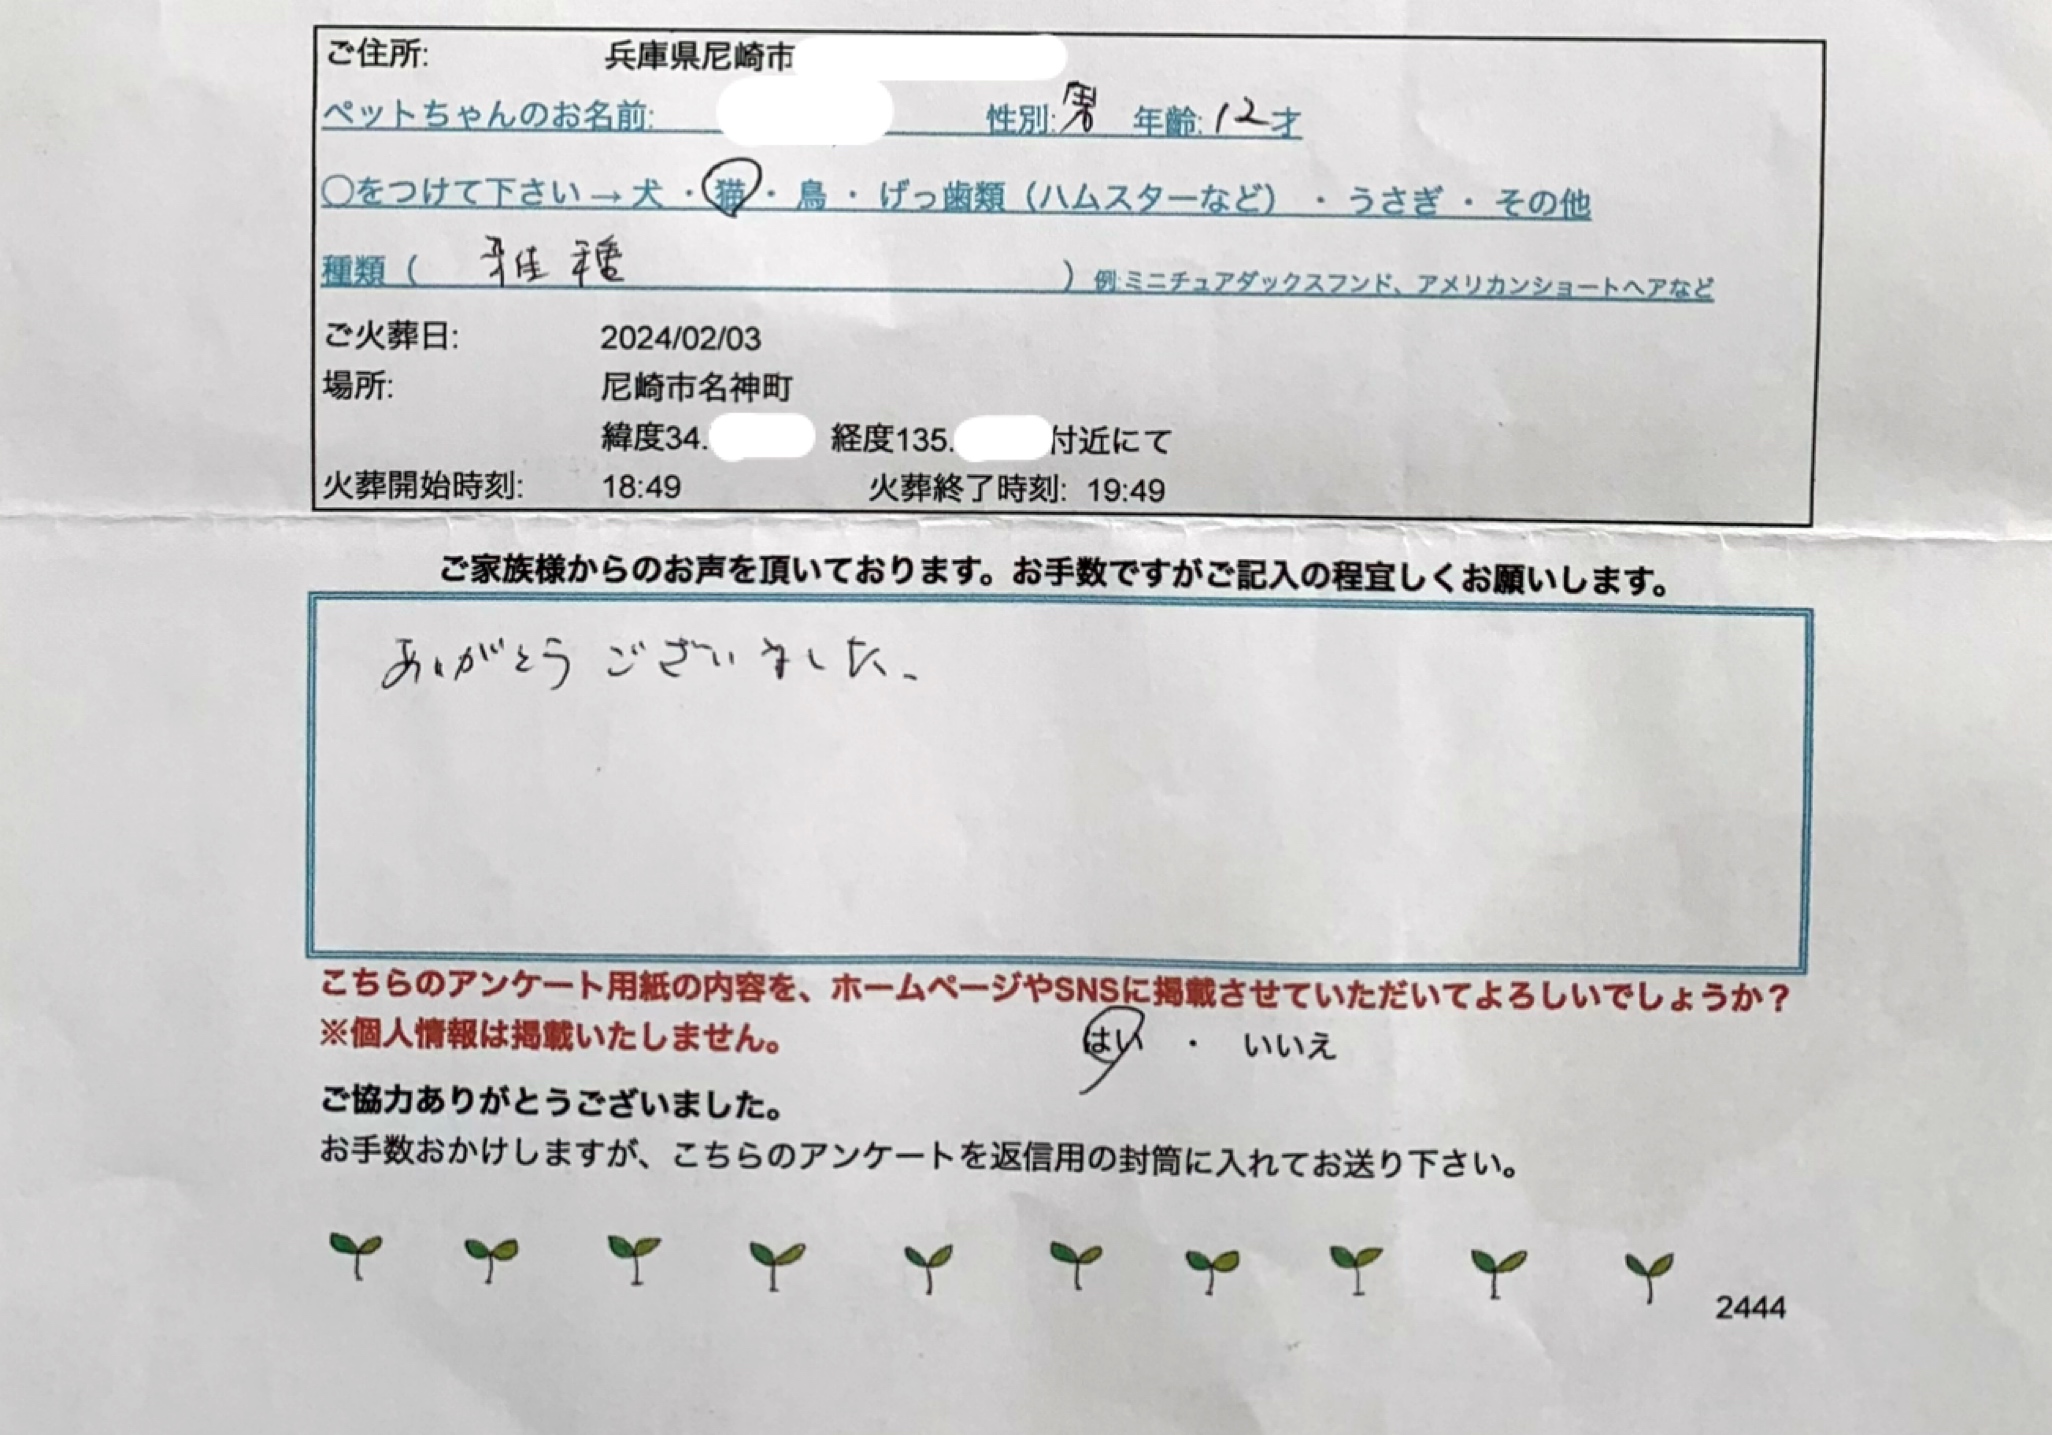 ご住所: 兵庫県尼崎市
ペットちゃんのお名前: 性別:男 年齢:12才
〇をつけて下さい→犬・猫・鳥・げっ歯類（ハムスターなど）・うさぎ・その他
種類（ 雑種 ）例:ミニチュアダックスフンド、アメリカンショートヘアなど
ご火葬日: 2024/02/03
場所: 尼崎市名神町
緯度34. 経度135. 付近にて
火葬開始時刻: 18:49 火葬終了時刻: 19:49
ご家族様からのお声を頂いております。お手数ですがご記入の程宜しくお願いします。
ありがとうございました。
こちらのアンケート用紙の内容を、ホームページやSNSに掲載させていただいてよろしいでしょうか？
※個人情報は掲載いたしません。 はい ・ いいえ
ご協力ありがとうございました。
お手数おかけしますが、こちらのアンケートを返信用の封筒に入れてお送り下さい。
2444